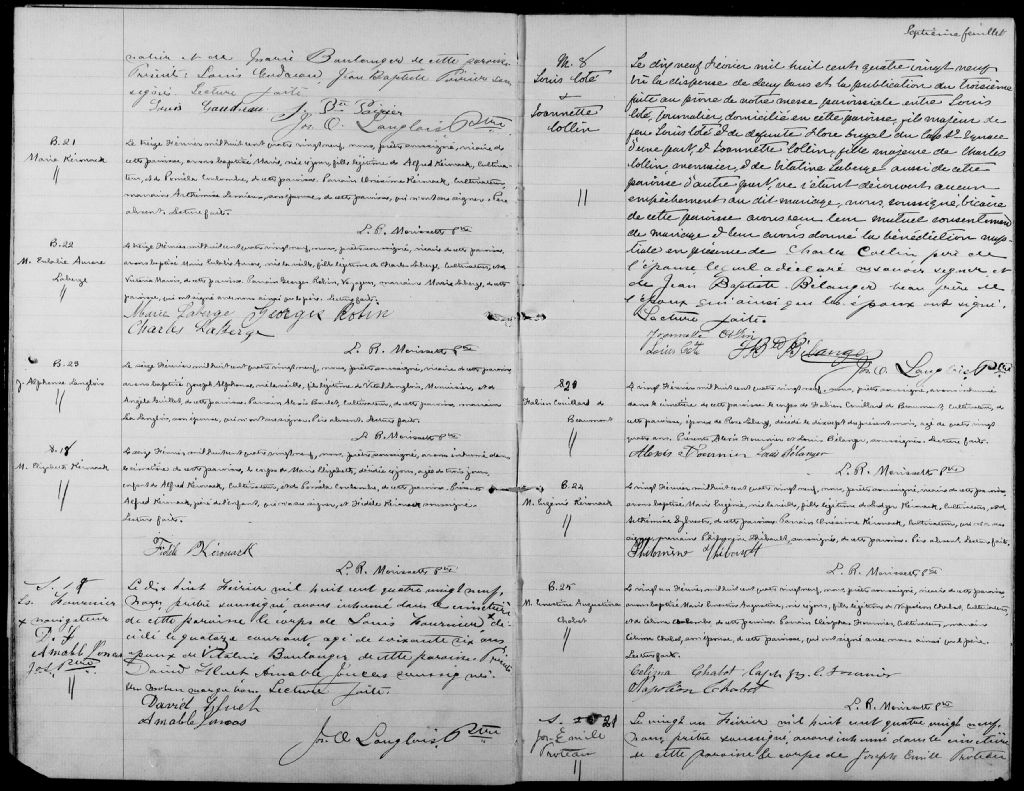 notier et de Marie Boulanger de cette paroisse
Présents: Louis Gaudreau Jean Baptiste Poirier sou
signés Lecture faite
Louis Gaudreau J. Bte Poirier
Jos. O. Langlois Ptre
B. 21
Marie Kéirouack
Le seize Février mil huit cent quatre vingt neuf, nous, prêtre soussigné, vicaire de
cette paroisse, avons baptisé Marie, née ce jour, fille légitime de Alfred Kéirouack, Cultiva-
teur, et de Coulombe, de cette paroisse. Parrain Onésime Kéirouack, Cultivateur,
marraine Arthémise Lemieux, son épouse, de cette paroisse, qui n'ont su signer. Père
absent. Lecture faite.
L. R. Morissette Ptre
B. 22
M. Eulalie Aurore
Laberge
Le seize Février mil huit cent quatre vingt neuf, nous, prêtre soussigné, vicaire de cette paroisse,
avons baptisé Marie Eulalie Aurore, née la veille, fille légitime de Charles Laberge, Cultivateur, et de
Victoria Marois, de cette paroisse. Parrain Georges Robin, Voyageur, marraine Marie Laberge, de cette
paroisse, qui ont signé avec nous ainsi que le père. Lecture faite.
Marie Laberge Georges Robin
Charles Laberge
L. R. Morissette Ptre
B. 23
J. Alphonse Langlois
Le seize Février mil huit cent quatre vingt neuf, nous, prêtre soussigné, vicaire de cette paroisse
avons baptisé Joseph Alphonse, né la veille, fils légitime de Vital Langlois, Menuisier, et de
Angèle Guillet, de cette paroisse. Parrain Alexis Boulet, Cultivateur, de cette paroisse, marraine
Langlois, son épouse, qui n'ont su signer. Père absent. Lecture faite.
L. R. Morissette Ptre
S. 17
M. Elizabeth Kéirouack
Le seize Février mil huit cent quatre vingt neuf, nous, prêtre soussigné, avons inhumé dans
le cimetière de cette paroisse, le corps de Marie Elizabeth, décédée ce jour, agée de trois jours,
enfant de Alfred Kéirouack, Cultivateur, et de Coulombe, de cette paroisse. Présents
Alfred Kéirouack, père de l'enfant, qui n'a su signer, et Fidèle Kéirouack soussigné.
Lecture faite.
Fidèle Kérouack
L. R. Morissette Ptre
S. 18
Ls. Fournier
x navigateur
D. H
Amable Joncas
Jos. Ptre
Le dix huit Février mil huit cent quatre vingt neuf,
Nous prêtre soussigné avons inhumé dans le cimetière
de cette paroisse le corps de Louis Fournier x dé-
cédé le quatorze courant agé de soixante dix ans
époux de Vitaline Boulanger de cette paroisse. Présents
David Huet Amable Joncas soussignés.
Un mot en marge bon. Lecture faite.
David Huet
Amable Joncas
Jos. O. Langlois Ptre
Septième feuillet
M. 8
Louis Coté
&
Jeannette
Collin
Le dix neuf Février mil huit cent quatre vingt neuf
Vu la dispense de deux bans et la publication du troisième
faite au prône de notre messe paroissiale entre Louis
Coté, journalier, domicilié en cette paroisse, fils majeur de
feu Louis Coté & de défunte Flore du Cap St Ignace
d'une part, & Jeannette Collin, fille majeure de Charles
Collin, menuisier, & de Vitaline Laberge aussi de cette
paroisse d'autre part, ne s'étant découvert aucun
empêchement au dit mariage, nous, soussigné, vicaire
de cette paroisse avons reçu leur mutuel consentement
de mariage & leur avons donné la bénédiction nup-
tiale en présence de Charles Collin père de
l'épouse lequel a déclaré ne savoir signer, et
de Jean Baptiste Bélanger beau frère de
l'époux qui ainsi que les époux ont signé.
Lecture faite.
Jeannette Collin
Louis Coté J Bte Bélanger
Jos. O. Langlois Ptre
S. 20
Fabien Couillard de
Beaumont
Le vingt Février mil huit cent quatre vingt neuf, nous, prêtre soussigné, avons inhumé
dans le cimetière de cette paroisse le corps de Fabien Couillard de Beaumont, Cultivateur, de
cette paroisse, époux de Rose Laberge, décédé le dix sept du présent mois, agé de quatre vingt
quatre ans. Présents Alexis Fournier et Louis Bélanger, soussignés. Lecture faite.
Alexis Fournier Louis Bélanger
L. R. Morissette Ptre
B. 24
M. Eugénie Kéirouack
Le vingt Février mil huit cent quatre vingt neuf, nous, prêtre soussigné, vicaire de cette paroisse,
avons baptisé Marie Eugénie, née la veille, fille légitime de Kéirouack, Cultivateur, et de
Arthémise Sylvestre, de cette paroisse. Parrain Onésime Kéirouack, Cultivateur, qui n'a su
signer, marraine Philomène Thibault, soussignée, de cette paroisse. Père absent. Lecture faite.
Philomène Thibault
L. R. Morissette Ptre
B. 25
M. Ernestine Augustine
Chabot
Le vingt Février mil huit cent quatre vingt neuf, nous, prêtre soussigné, vicaire de cette paroisse,
avons baptisé Marie Ernestine Augustine, née ce jour, fille légitime de Napoléon Chabot, Cultivateur,
et de Coulombe de cette paroisse. Parrain Cléophas Fournier, Cultivateur, marraine
Célina Chabot, son épouse, de cette paroisse, qui ont signé avec nous ainsi que le père.
Lecture faite.
Celina Chabot C. Fournier
Napoléon Chabot
L. R. Morissette Ptre
S. 21
Jos. Emile
Proteau
Le vingt un Février mil huit cent quatre vingt neuf,
Nous prêtre soussigné, avons inhumé dans le cimetière
de cette paroisse le corps de Joseph Emile Proteau